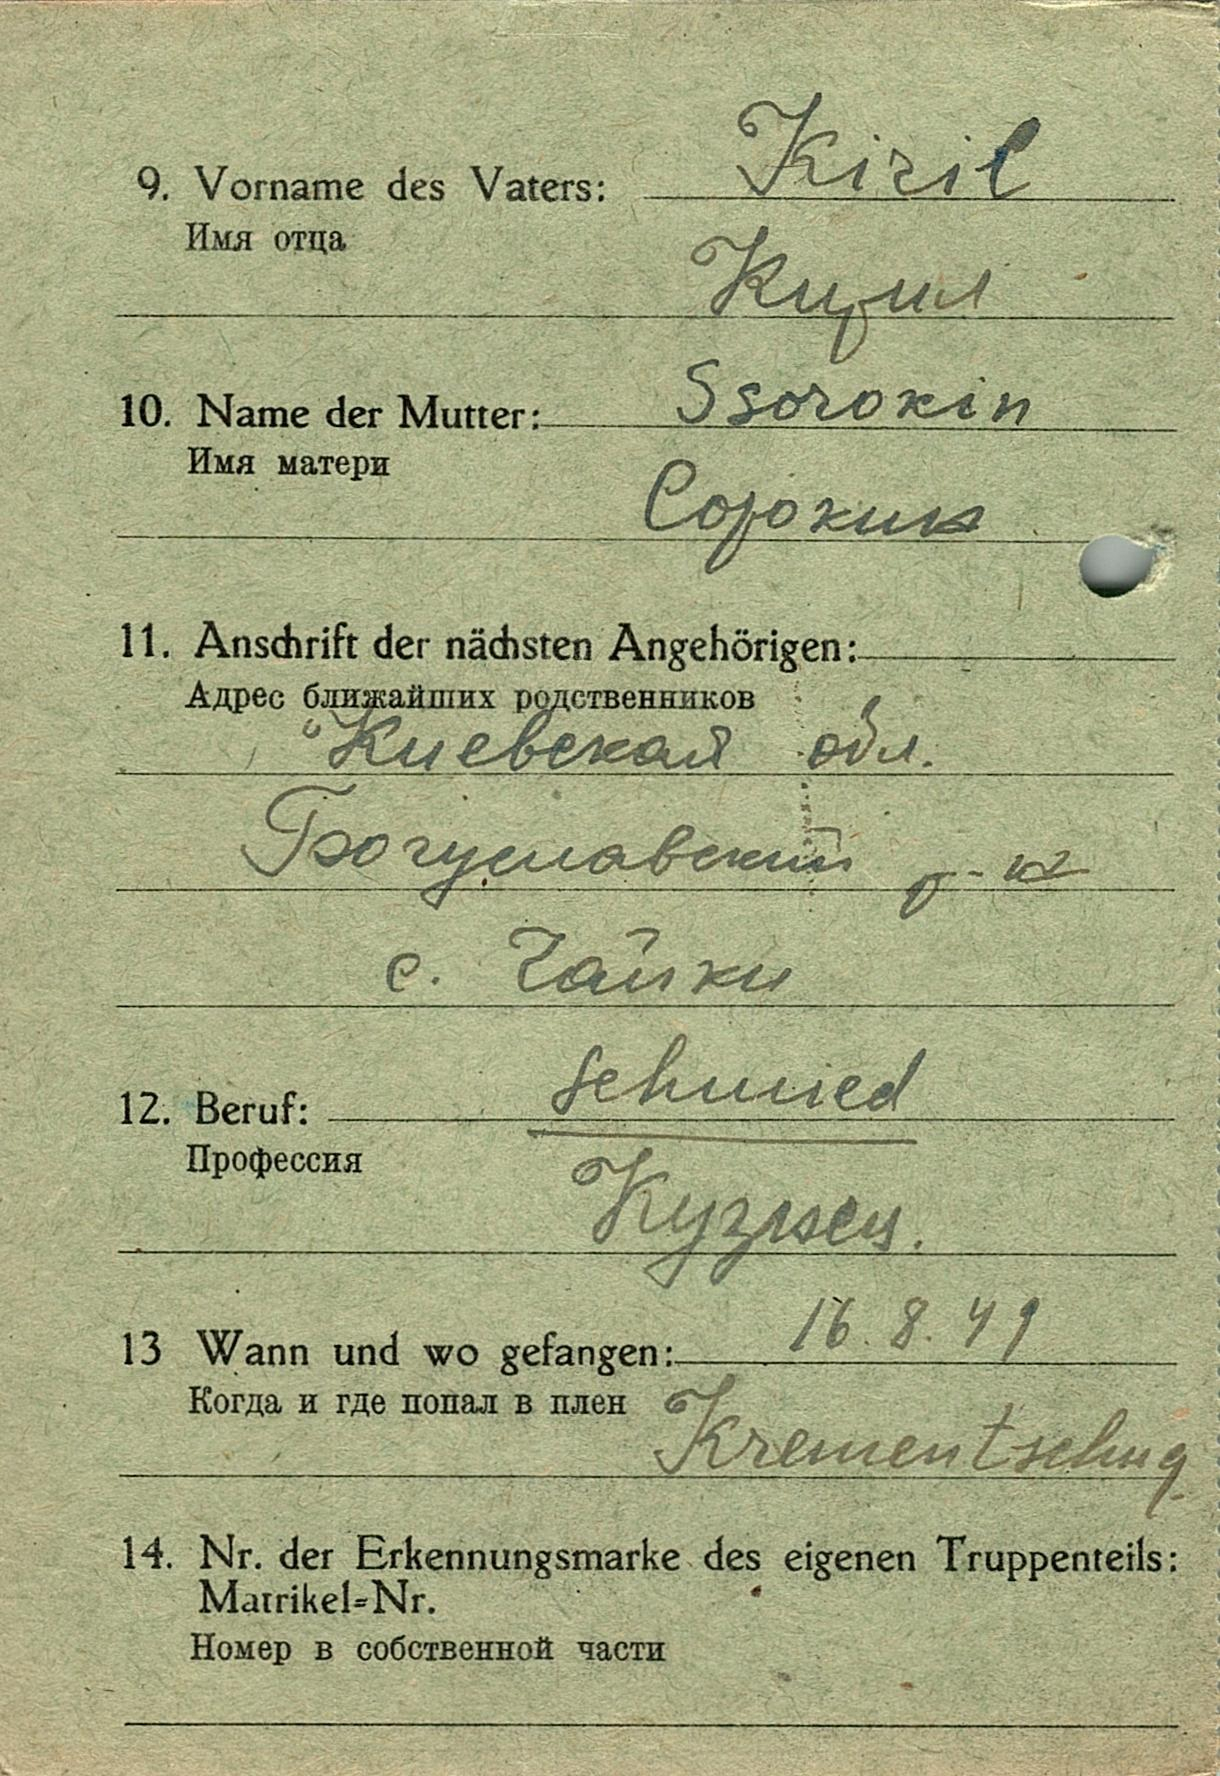 9. Vorname des Vaters: Kiril
Имя отца
Кирил
10. Name der Mutter: Ssorokin
Имя матери
Сорокин
11. Anschrift der nächsten Angehörigen:
Адрес ближайших родственников
Киевская обл.
Богуславский р-н
с. Чайки
12. Beruf: schmied
Профессия
Кузнец.
13 Wann und wo gefangen: 16.8.41
Когда и где попал в плен
Krementschug
14. Nr. der Erkennungsmarke des eigenen Truppenteils:
Matrikel=Nr.
Номер в собственной части